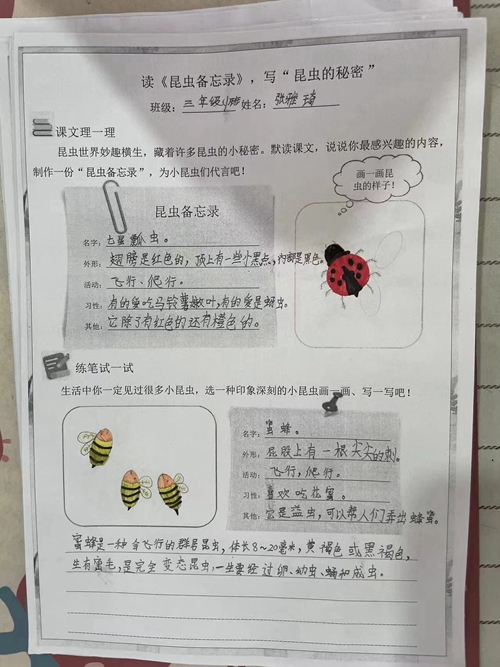 读《昆虫备忘录》，写“昆虫的秘密”
班级：三年级 姓名：张雅琦
课文理一理
昆虫世界妙趣横生，藏着许多昆虫的小秘密。默读课文，说说你最感兴趣的内容，
制作一份“昆虫备忘录”，为小昆虫们代言吧！
画一画昆
虫的样子！
昆虫备忘录
名字：七星瓢虫。
外形：翅膀是红色的，顶上有一些小黑点，内部是黑色
活动：飞行、爬行。
习性：有的爱吃马铃薯嫩叶，有的爱是蚜虫。
其他：它除了有红色的还有橙色的。
练笔试一试
生活中你一定见过很多小昆虫，选一种印象深刻的小昆虫画一画、写一写吧！
名字：蜜蜂。
外形：屁股上有一根尖尖的刺。
活动：飞行，爬行。
习性：喜欢吃花蜜。
其他：它是益虫，可以帮人们弄出蜂蜜。
蜜蜂是一种会飞行的群居昆虫，体长8~20毫米，黄褐色或黑褐色，
生有毛，是完全变态昆虫，一生要经过卵、幼虫、蛹和成虫。